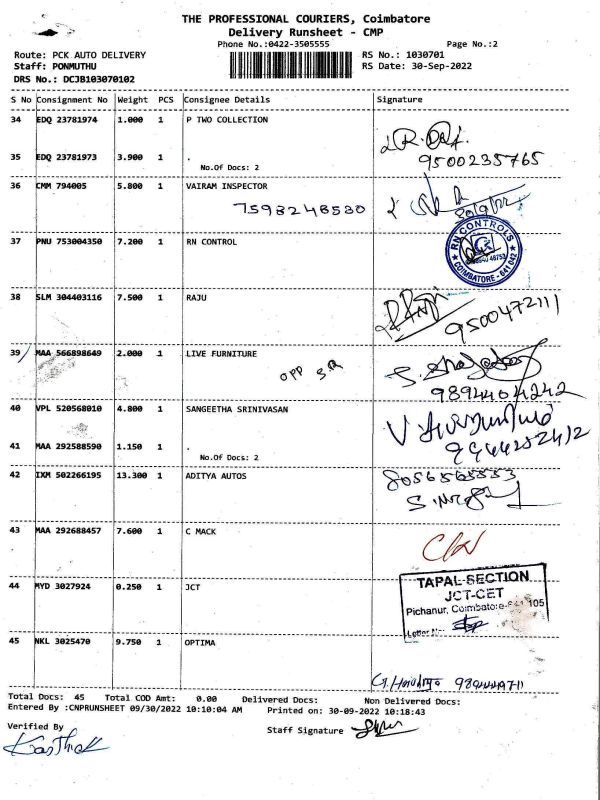 THE PROFESSIONAL COURIERS, Coimbatore
Delivery Runsheet - CMP
Phone No.:0422-3505555 Page No.:2
Route: PCK AUTO DELIVERY RS No.: 1030701
Staff: PONMUTHU RS Date: 30-Sep-2022
DRS No.: DCJB103070102
S No Consignment No Weight PCS Consignee Details Signature
34 EDQ 23781974 1.000 1 P TWO COLLECTION
35 EDQ 23781973 3.900 1 .
9500235765
No.Of Docs: 2
36 CMM 794005 5.800 1 VAIRAM INSPECTOR
7598248580
RN CONTROLS
COIMBATORE - 641 042
37 PNU 753004350 7.200 1 RN CONTROL
38 SLM 304403116 7.500 1 RAJU
9500472111
39 MAA 566898649 2.000 1 LIVE FURNITURE
OPP
9894404242
40 VPL 520568010 4.800 1 SANGEETHA SRINIVASAN
41 MAA 292588590 1.150 1 .
No.Of Docs: 2
42 IXM 502266195 13.300 1 ADITYA AUTOS
43 MAA 292688457 7.600 1 C MACK
TAPAL-SECTION
JCT-CET
Pichanur, Coimbatore-641 105
44 MYD 3027924 0.250 1 JCT
45 NKL 3025470 9.750 1 OPTIMA
Total Docs: 45 Total COD Amt: 0.00 Delivered Docs: Non Delivered Docs:
Entered By :CNPRUNSHEET 09/30/2022 10:10:04 AM Printed on: 30-09-2022 10:18:43
Verified By Staff Signature
Karthick